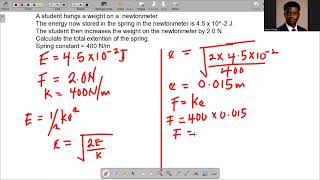 A student hangs a weight on a newtonmeter.
The energy now stored in the spring in the newtonmeter is 4.5 x 10^-2 J.
The student then increases the weight on the newtonmeter by 2.0 N.
Calculate the total extention of the spring.
Spring constant = 400 N/m
E = 4.5 x 10^-2 J
F = 2.0 N
K = 400 N/m
E = 1/2 ke^2
e = √(2E/K)
e = √(2 x 4.5 x 10^-2/400)
e = 0.015 m
F = Ke
F = 400 x 0.015
F =